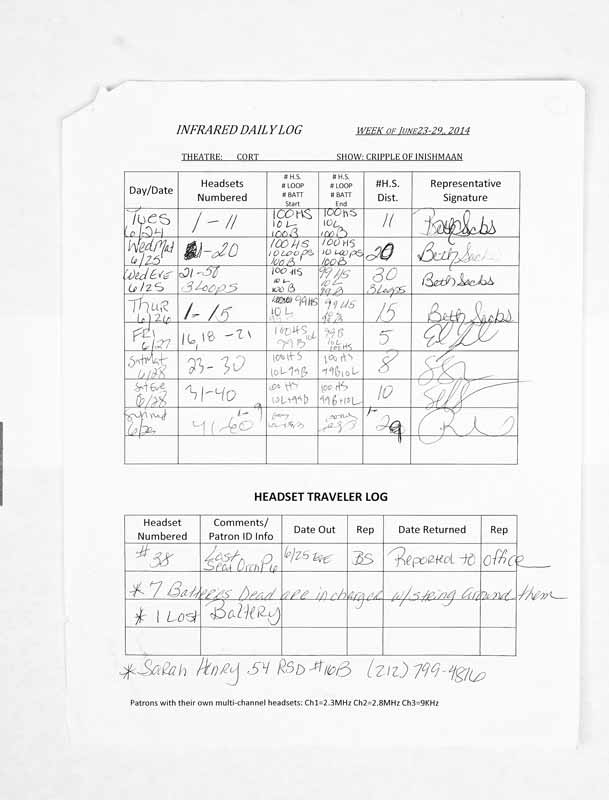 INFRARED DAILY LOG WEEK OF JUNE23-29, 2014
THEATRE: CORT SHOW: CRIPPLE OF INISHMAAN
Day/Date Headsets Numbered # H.S. # LOOP # BATT Start # H.S. # LOOP # BATT End #H.S. Dist. Representative Signature
Tues 6/24 1-11 100 HS 10 L 100 B 100 HS 10 L 100 B 11 Beth Sachs
Wed Mat 6/25 1-20 100 HS 10 LOOPS 100 B 100 HS 10 LOOPS 100 B 20 Beth Sachs
Wed Eve 6/25 21-50 3 Loops 100 HS 10 L 100 B 99 HS 10 L 99 B 30 3 Loops Beth Sachs
Thur 6/26 1-15 99 HS 10 L 99 HS 15 Beth Sachs
FRI 6/27 16, 18-21 100 HS 99 B 10L 99B 10L 100HS 5
Sat Mat 6/28 23-30 100 HS 10 L 99B 100 HS 99B 10L 8
Sat Eve 6/28 31-40 100 HS 10L+99B 100 HS 99B+10L 10
41-60 1-9
HEADSET TRAVELER LOG
Headset Numbered Comments/ Patron ID Info Date Out Rep Date Returned Rep
# 38 Lost Seat Orch P6 6/25 Eve BS Reported to office
* 7 Batteries Dead are in charger w/string around them
* 1 Lost Battery
* Sarah Henry 54 RSD #10B (212) 799-4816
Patrons with their own multi-channel headsets: Ch1=2.3MHz Ch2=2.8MHz Ch3=9KHz